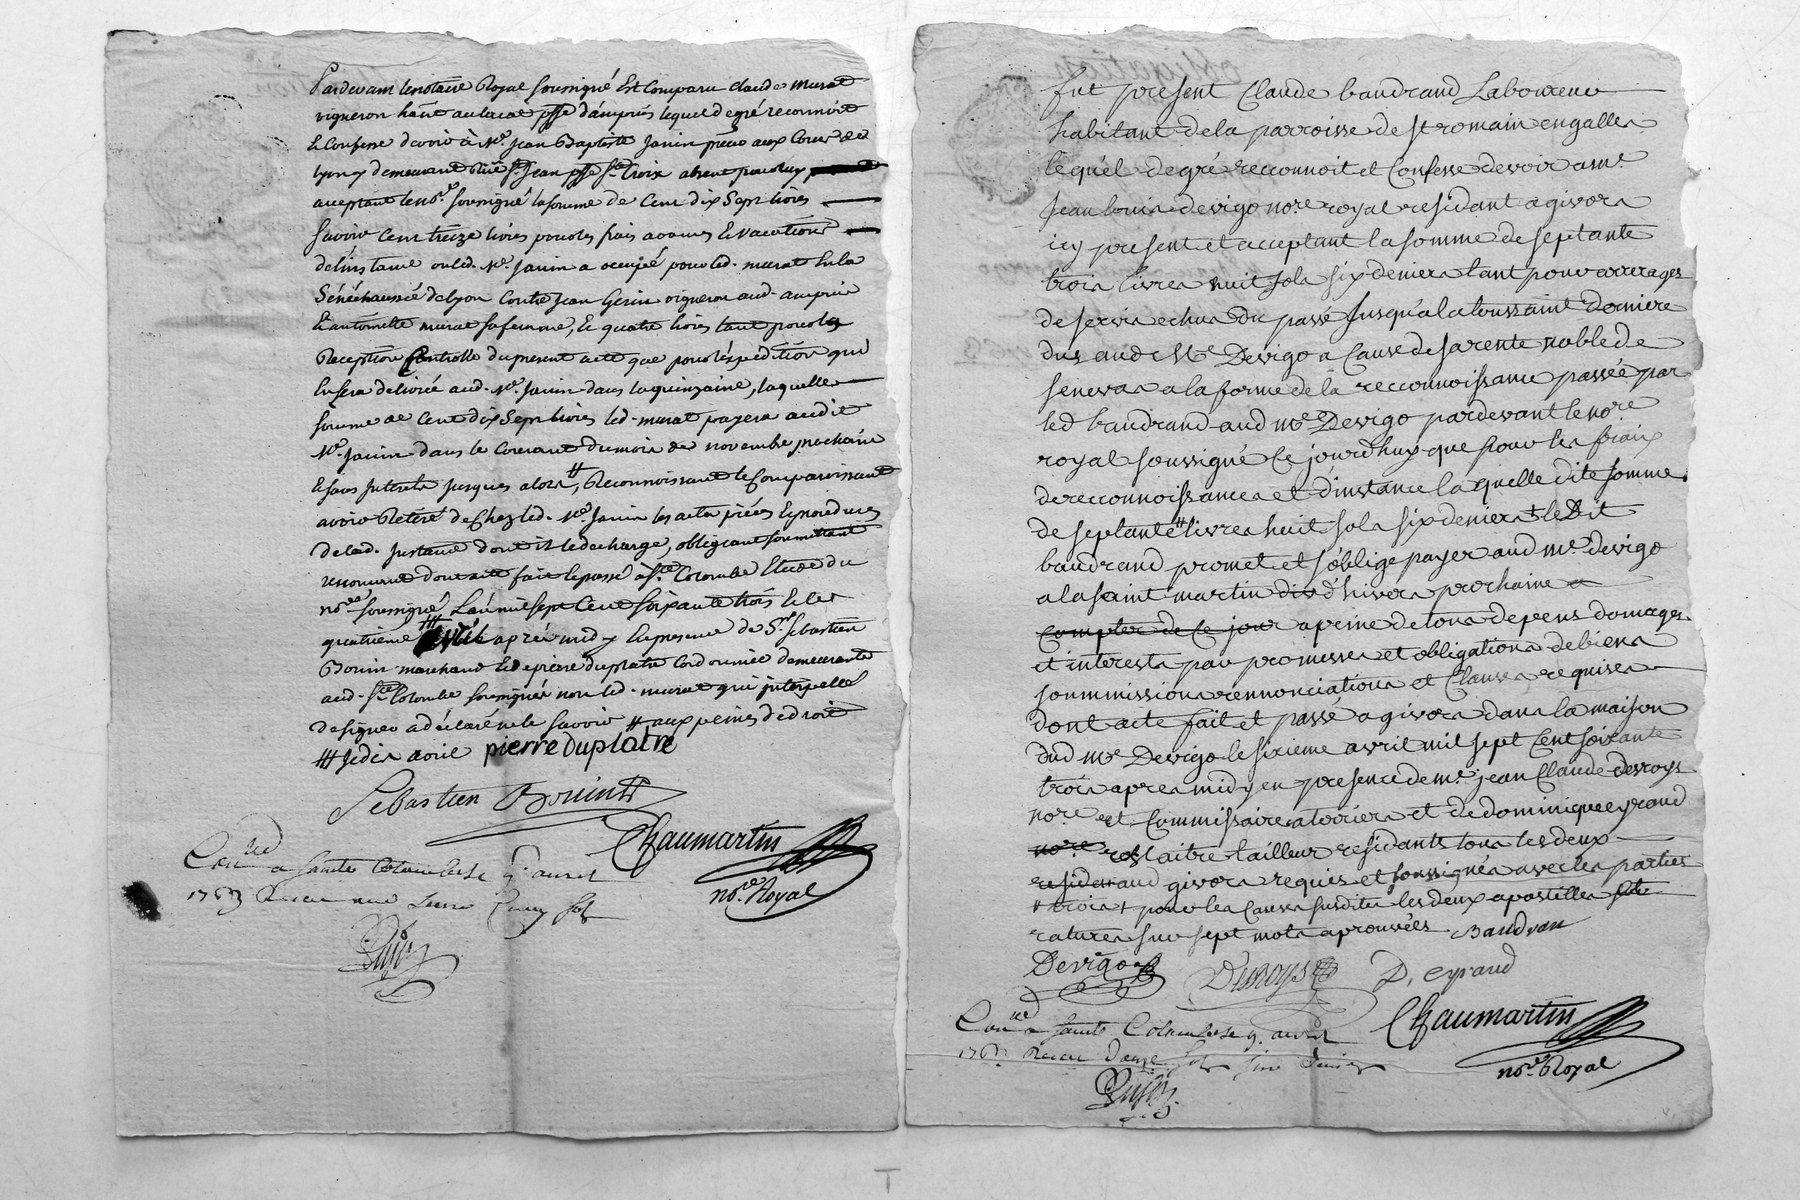 Pardevant le notaire Royal soussigné Est Comparu claude murat
vigneron habt au lieu psse d'ampuis lequel de gré reconnoit
Et Confesse devoir à Me. Jean Baptiste Janin preur aux Cours de
Lyon y demeurant Rüe St. Jean psse Ste. Croix absent pour luy
acceptant le nore. soussigné la somme de Cent dix Sept livres
Savoir Cent treize livres pour les frais avances Et vacations
de linstance ou led. Me. Janin a occupé pour led. murat En la
Sénéchaussée de Lyon Contre Jean Gerin vigneron aud. ampuis
Et antoinette murat sa femme, Et quatre livres tant pour la
Reception Controlle du present acte que pour léxpedition qui
En sera delivrée aud. Me. Janin dans la quinzaine, laquelle
somme de Cent dix Sept livres led. murat payera audit
Me. Janin dans le Courant du mois de novembre prochain
Et sans Interets jusques alors #, Reconnoissant le Comparoissant
avoir Retiré de Chez led. Me. Janin les actes pieces Et procedures
de lad. Instance dont il le decharge, obligeant soumettant
renonceant dont acte fait Et passé à Ste. Colombe Etude du
nore. soussigné L'an mil sept Cent soixante trois Et le
quatrieme ### après midy En presence de Sr. Sebastien
Bonin marchand Et de pierre duplatre Cordonnier demeurants
aud. Ste. Colombe soussignés non led. murat qui interpellé
de signer a déclaré ne le savoir # aux peines de droit
### jedis avril pierre duplatre
Sebastien Bonin
Chaumartin
nore. Royal
Conllé a Sainte Colombe le 9. avril
1763 Recu
fut present Claude baudrand Laboureur
habitant de la parroisse de st romain en galles
lequél de gré reconnoit et Confesse devoir a me
Jean louis devigo nore royal residant a givors
icy present et acceptant la somme de septante
trois livres huit sols six deniers tant pour arrerages
de servis echus du passé Jusqu'a la toussaint derniere
dus aud Me Devigo a Cause de sa rente noble de
senevas a la forme de la reconnoissance passée par
led baudrand aud me Devigo pardevant le nore
royal soussigné Ce jourd'huy que pour les fraix
de reconnoissances et d'instance la quelle dite somme
de septante # livres huit sols six deniers + ledit
baudrand promet et s'oblige payer aud me devigo
a la saint martin div d'hivers prochaine a
compter de Ce jour a peine de tous depens domages
et interests par promesses et obligations de biens
soummissions rennonciations et Clauses requises
dont acte fait et passé a givors dans la maison
dud me Devigo le sixieme avril mil sept Cent soixante
trois apres midy en presence de me jean Claude desroys
nore et Commissaire a terriers et de dominique eyraud
nore maitre tailleur residants tous les deux
residant aud givors requis et soussignés avec les parties
# trois + pour les Causes susdites les deux apostilles et les
ratures sur sept mots aprouvées Baudran
Devigo Desroys D. eyraud
Chaumartin
nore. Royal
Conllé a Sainte Colombe le 9. avril
1763. Recu Douze sols six deniers